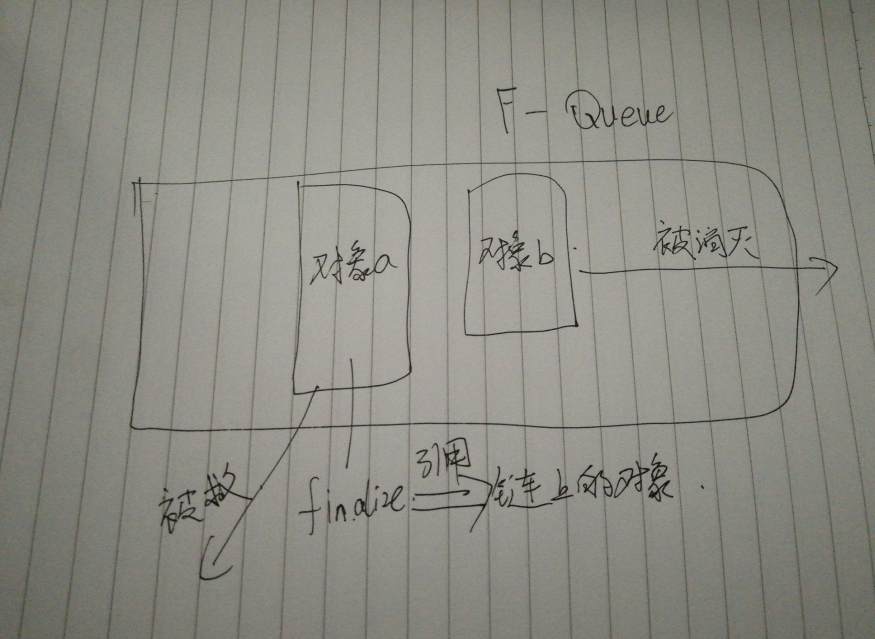 F-Queue
对象a
对象b
被消灭
被救
引用
finalize
链上的对象.